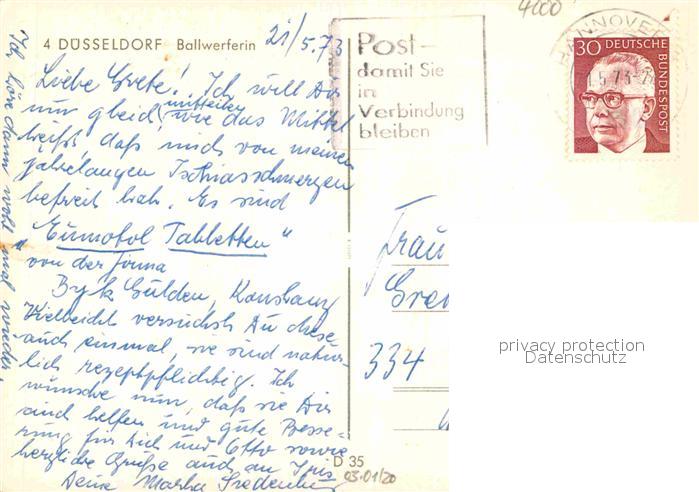 4 DÜSSELDORF Ballwerferin
21/5.73
Liebe Grete! Ich will Dir
nur gleich mitteilen, wie das Mittel
heißt, daß mich von meinen
jahrelangen Ischiasschmerzen
befreit hat. Es sind
"Eumotol Tabletten"
von der Firma
Byk Gulden, Konstanz
Vielleicht versuchst Du diese
auch einmal, sie sind natür-
lich rezeptpflichtig. Ich
wünsche nun, daß sie Dir
auch helfen und gute Besse-
rung für Dich und Otto sowie
herzliche Grüße auch an Iris
Deine Martha
Ich höre dann wohl mal wieder.
4000
Post-
damit Sie
in
Verbindung
bleiben
HANNOVER
.5.73
30 DEUTSCHE
BUNDESPOST
Frau
Gre
334
D 35
03.01/20
privacy protection
Datenschutz